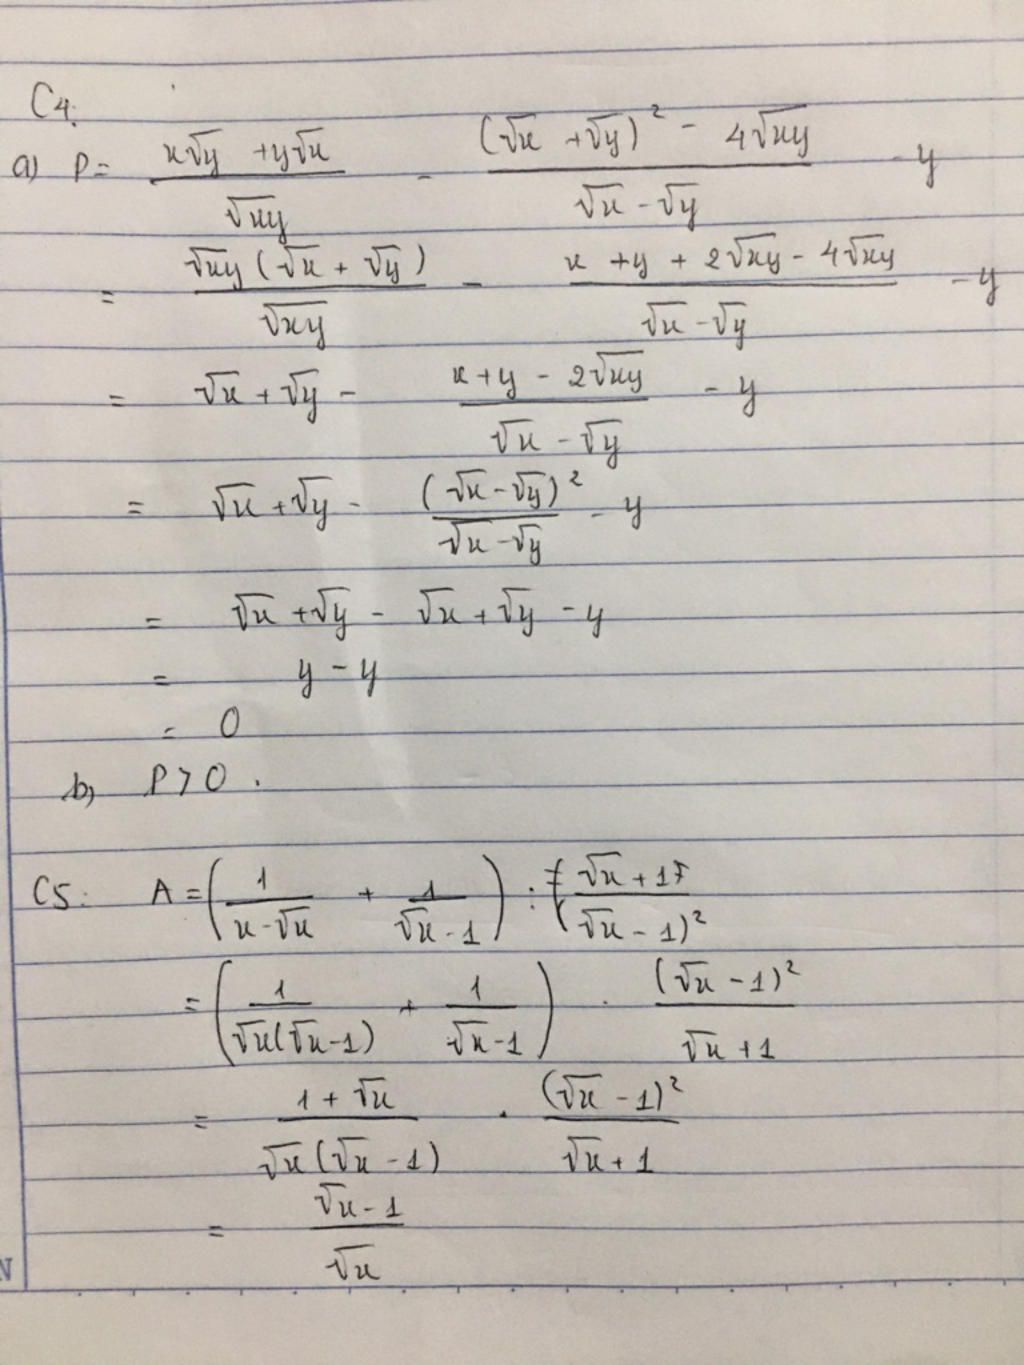 C4:
a) P = (x√y + y√x)/√xy - ((√x + √y)² - 4√xy)/(√x - √y) - y
= √xy(√x + √y)/√xy - (x + y + 2√xy - 4√xy)/(√x - √y) - y
= √x + √y - (x + y - 2√xy)/(√x - √y) - y
= √x + √y - (√x - √y)²/(√x - √y) - y
= √x + √y - √x + √y - y
= y - y
= 0
b, P > 0 .
C5: A = (1/(x - √x) + 1/(√x - 1)) : (√x + 1)/(√x - 1)²
= (1/(√x(√x - 1)) + 1/(√x - 1)) . (√x - 1)²/(√x + 1)
= (1 + √x)/(√x(√x - 1)) . (√x - 1)²/(√x + 1)
= (√x - 1)/√x
N